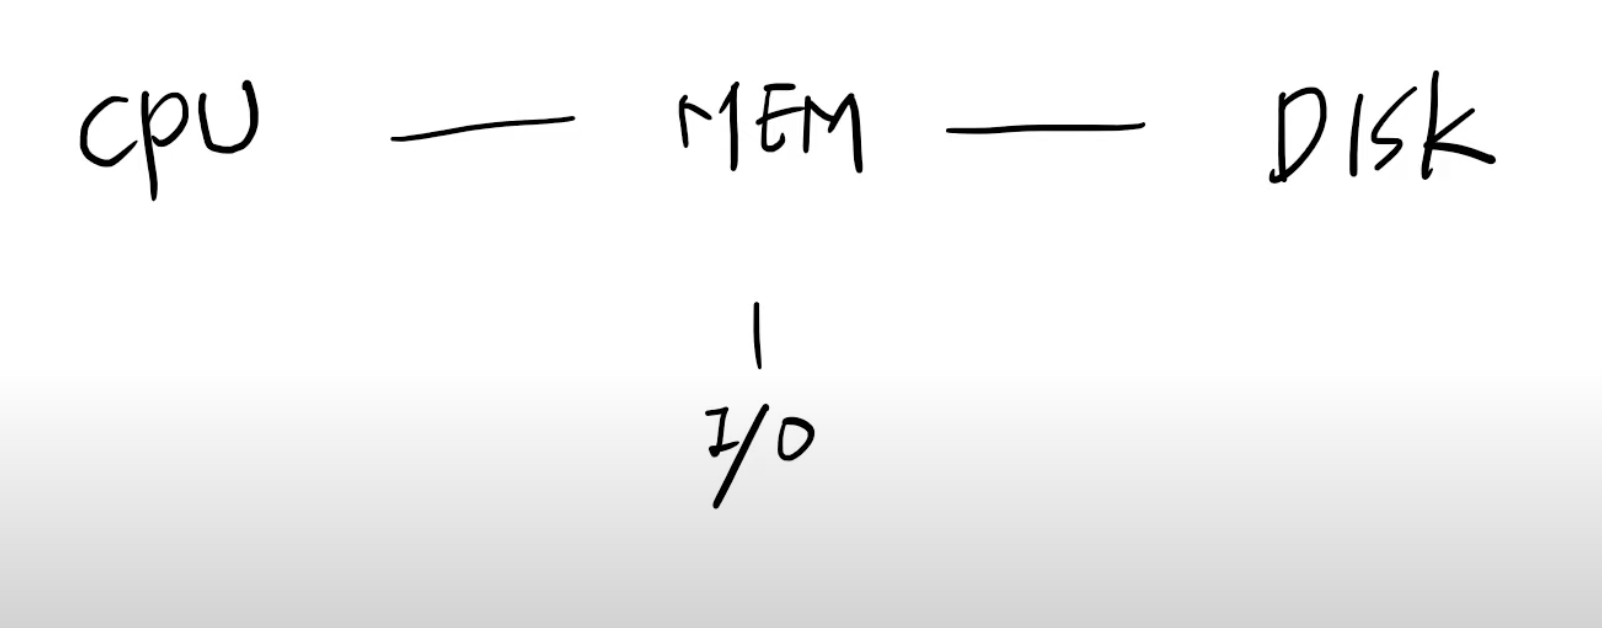 CPU MEM DISK
I/O